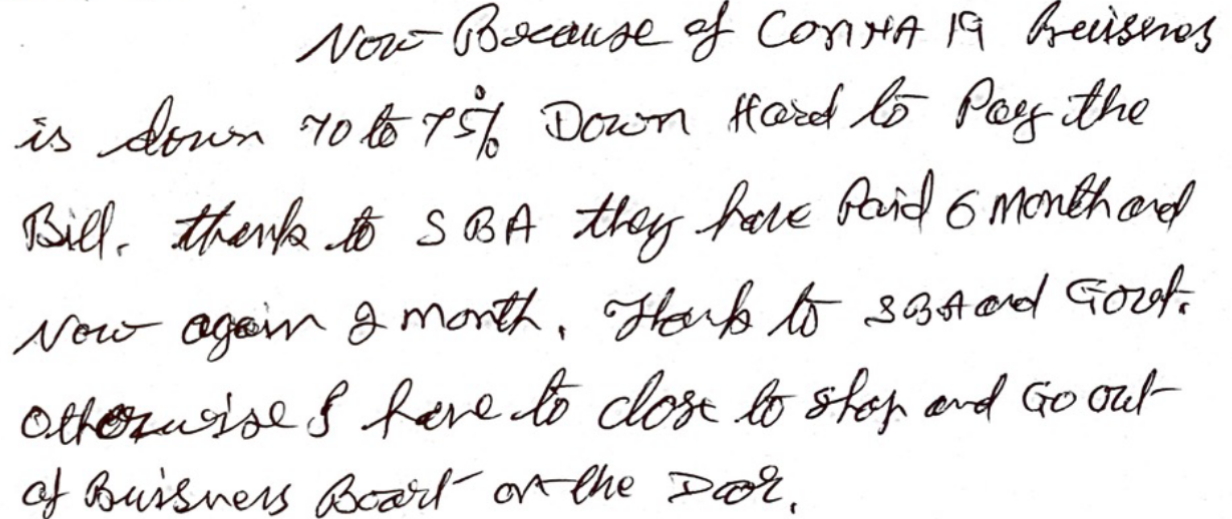 Now Because of CoruNA 19 Buisness
is down 70 to 75% Down Hard to Pay the
Bill. thanks to SBA they have Paid 6 month and
Now again 2 month. Thank to SBA and Govt.
otherwise I have to close to shop and Go out
of Buisness Board on the Door.